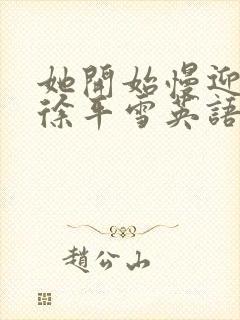 她開始慢迎
徐平雪英語
趙公山